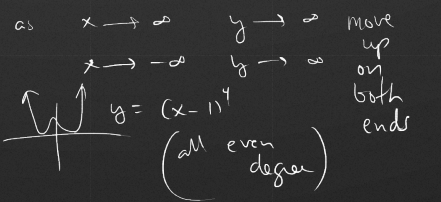 as x → ∞ y → ∞ move
up
x → -∞ y → ∞ on
both
ends
y = (x-1)⁴
(all even
degree)